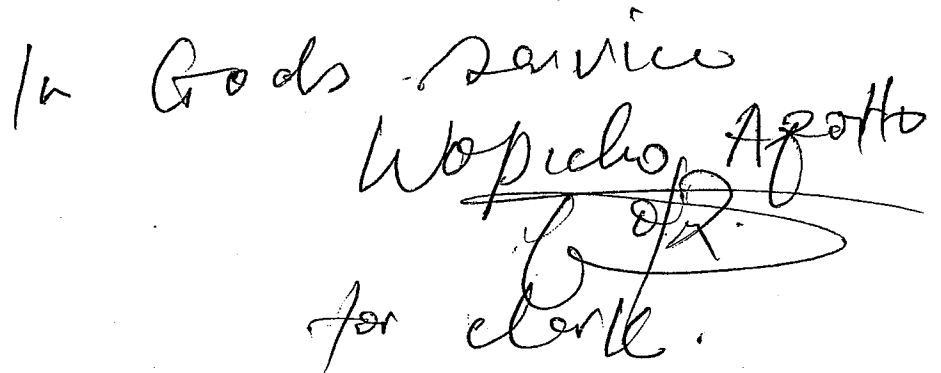 In Gods service
Wopicho Apollo
for clerk.